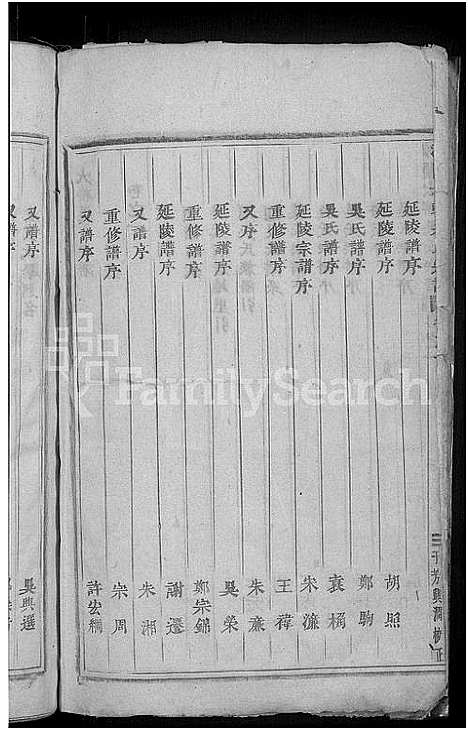 延陵譜序 胡照
延陵譜序 鄭駒
吳氏譜序 袁桷
吳氏譜序 朱濂
延陵宗譜序 王禕
重修譜序 朱廉
又序
延陵譜序 吳榮
重修譜序 鄭宗錦
延陵譜序 謝遷
又譜序 朱湘
重修譜序 宗周
又譜序 許宏綱
又譜序 吳與選
又譜序
FamilySearch